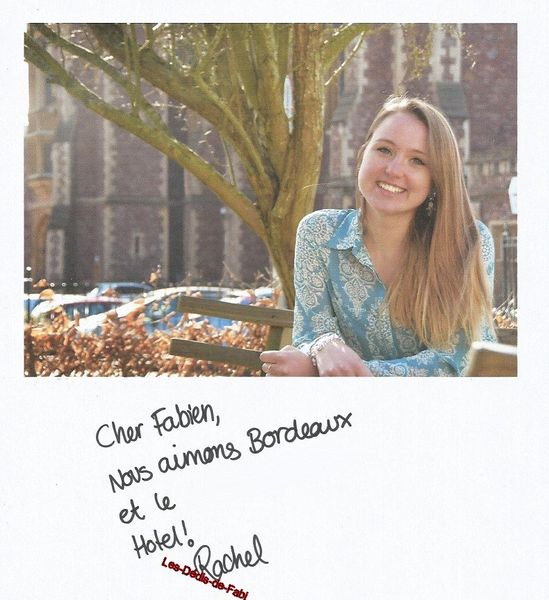 Cher Fabien,
Nous aimons Bordeaux
et le
Hotel!
Rachel
Les-Dédis-de-Fabi